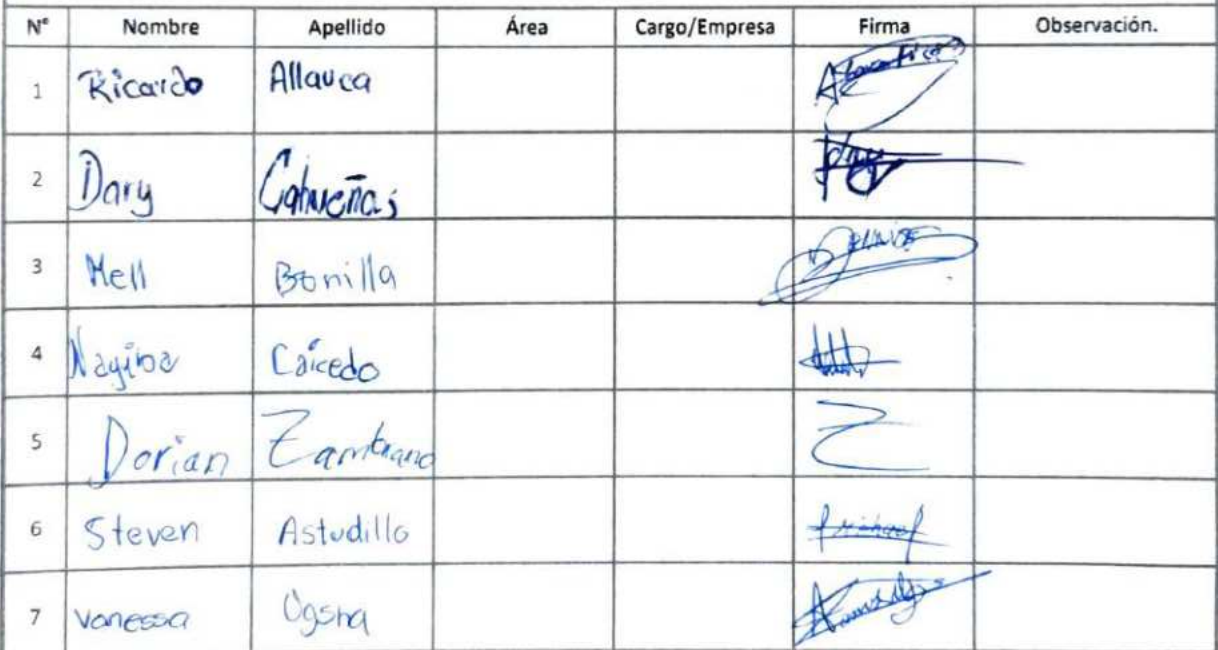 N° Nombre Apellido Área Cargo/Empresa Firma Observación.
1 Ricardo Allauca
2 Dary Cahueñas
3 Mell Bonilla
4 Nayiba Caicedo
5 Dorian Zambrano
6 Steven Astudillo
7 Vanessa Ogsha